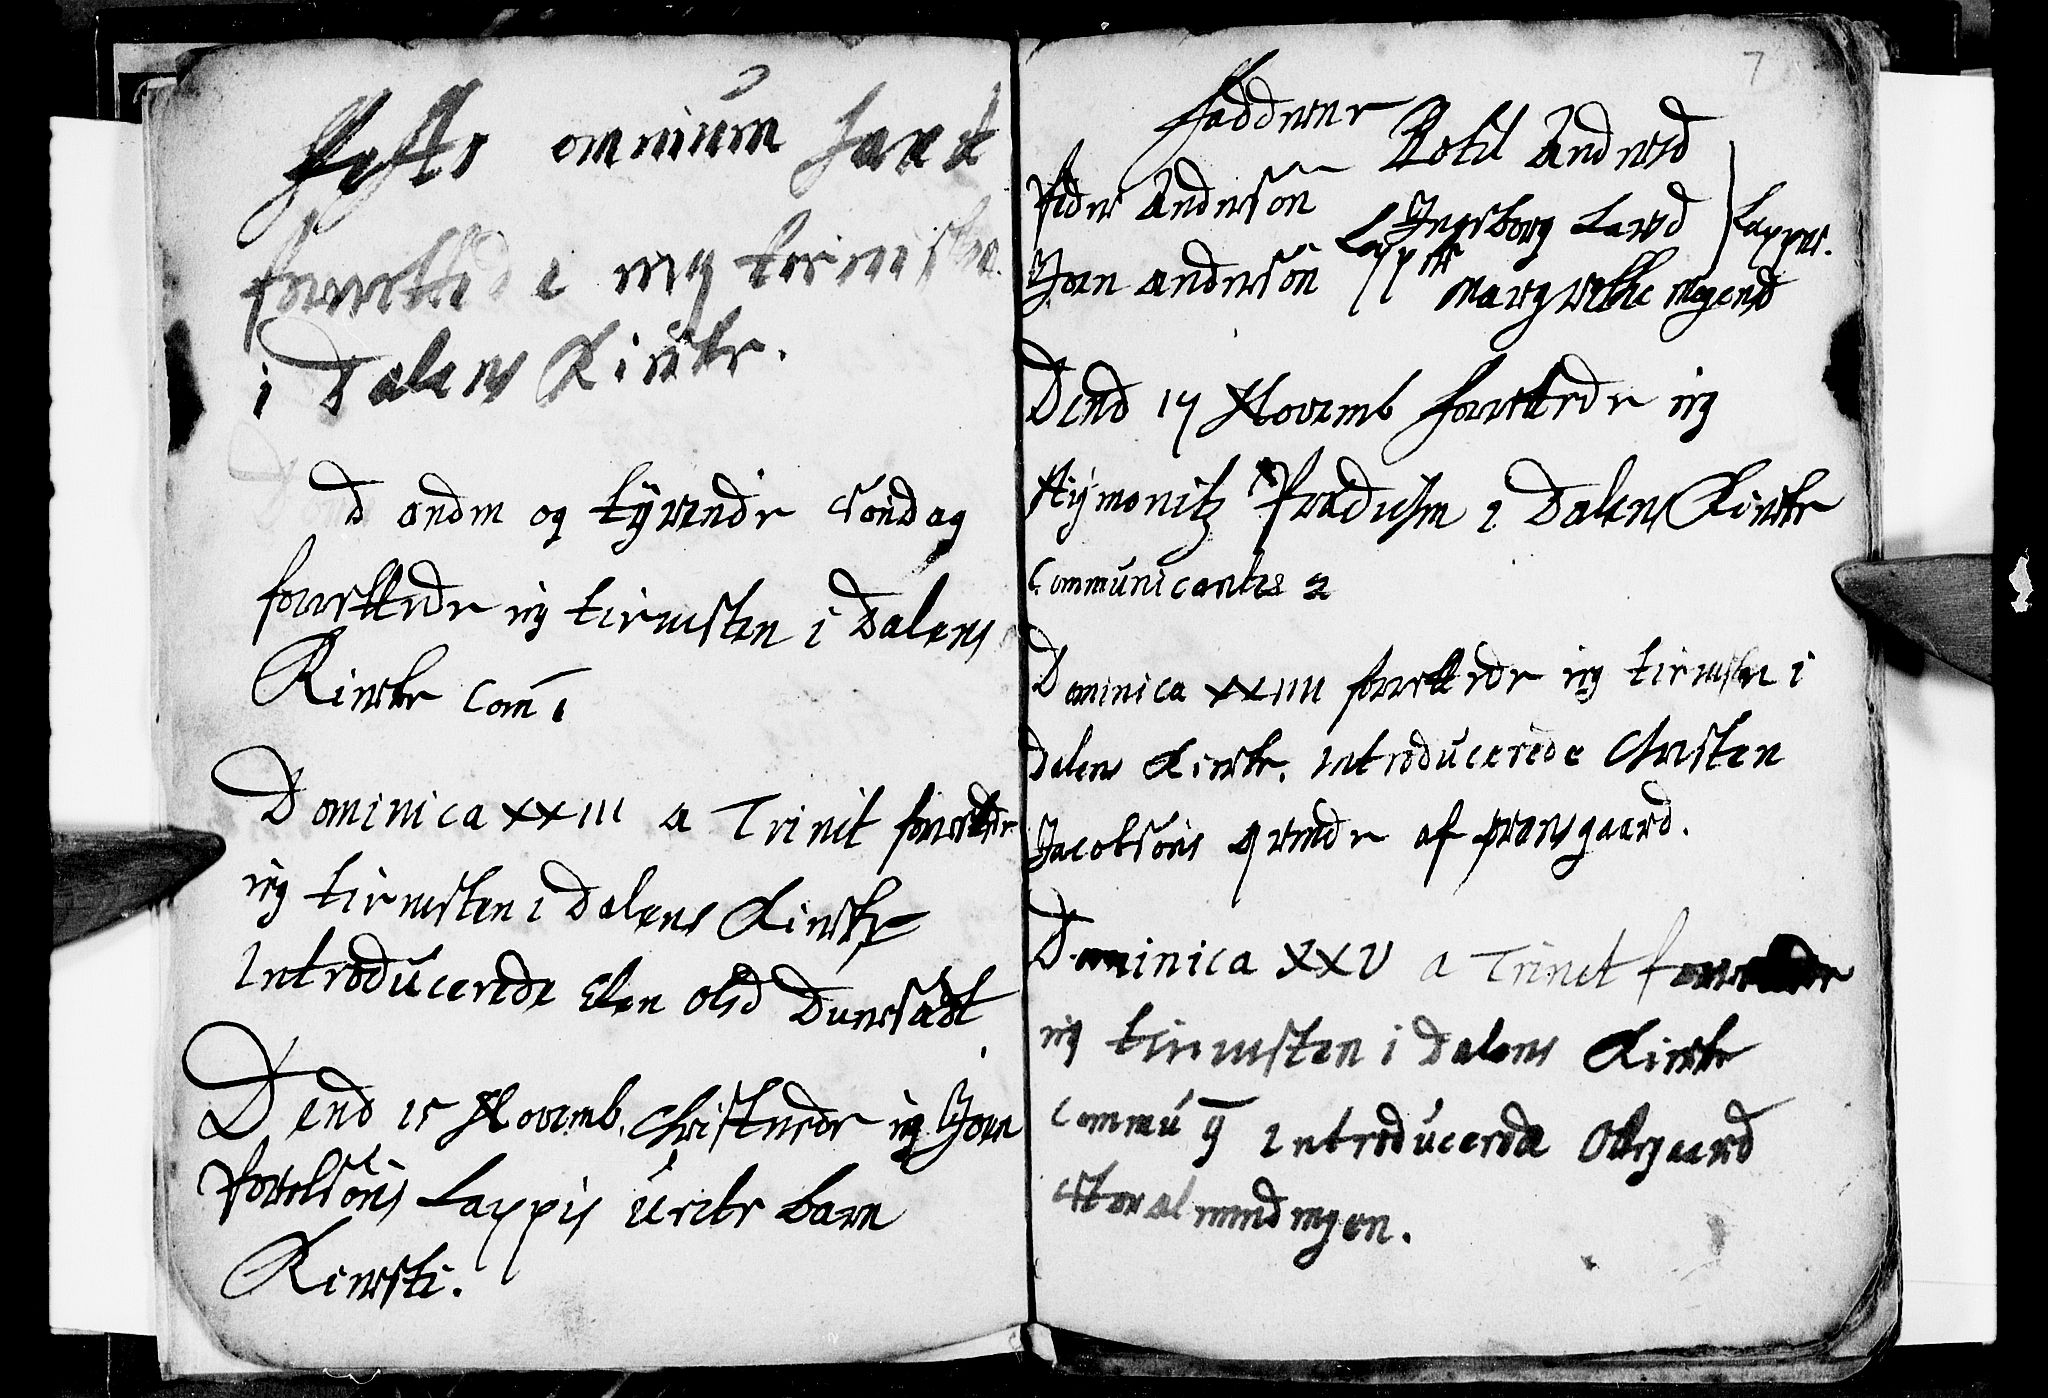 Festo omnium sanct
forrettede ieg tienisten
i Dalens Kircke.
D anden og tÿvende Söndag
forrettede ieg tienisten i Dalens
Kircke Com 1
Dominica XXIII a Trinit forrettede
ieg tienisten i Dalens Kircke
Introducerede Elen Olsd
Dend 15 Novemb. Christnede ieg Joen
Povelsöns Lappis barn
Kirsti.
7
Faddere
Peder Andersön Botil Andersd
Ingeborg Larsd Lapper.
Joen Andersön Lapper Margrethe Mogensd
Dend 17 Novemb forrettede ieg
i Dalens Kircke
Communicantes 2
Dominica XXIIII forrettede ieg tienisten i
Dalens Kircke. Introducerede Christen
Jacobsöns qvinde af
Dominica XXV a Trinit forrettede
ieg tienisten i Dalens Kircke
Commu Introducerede